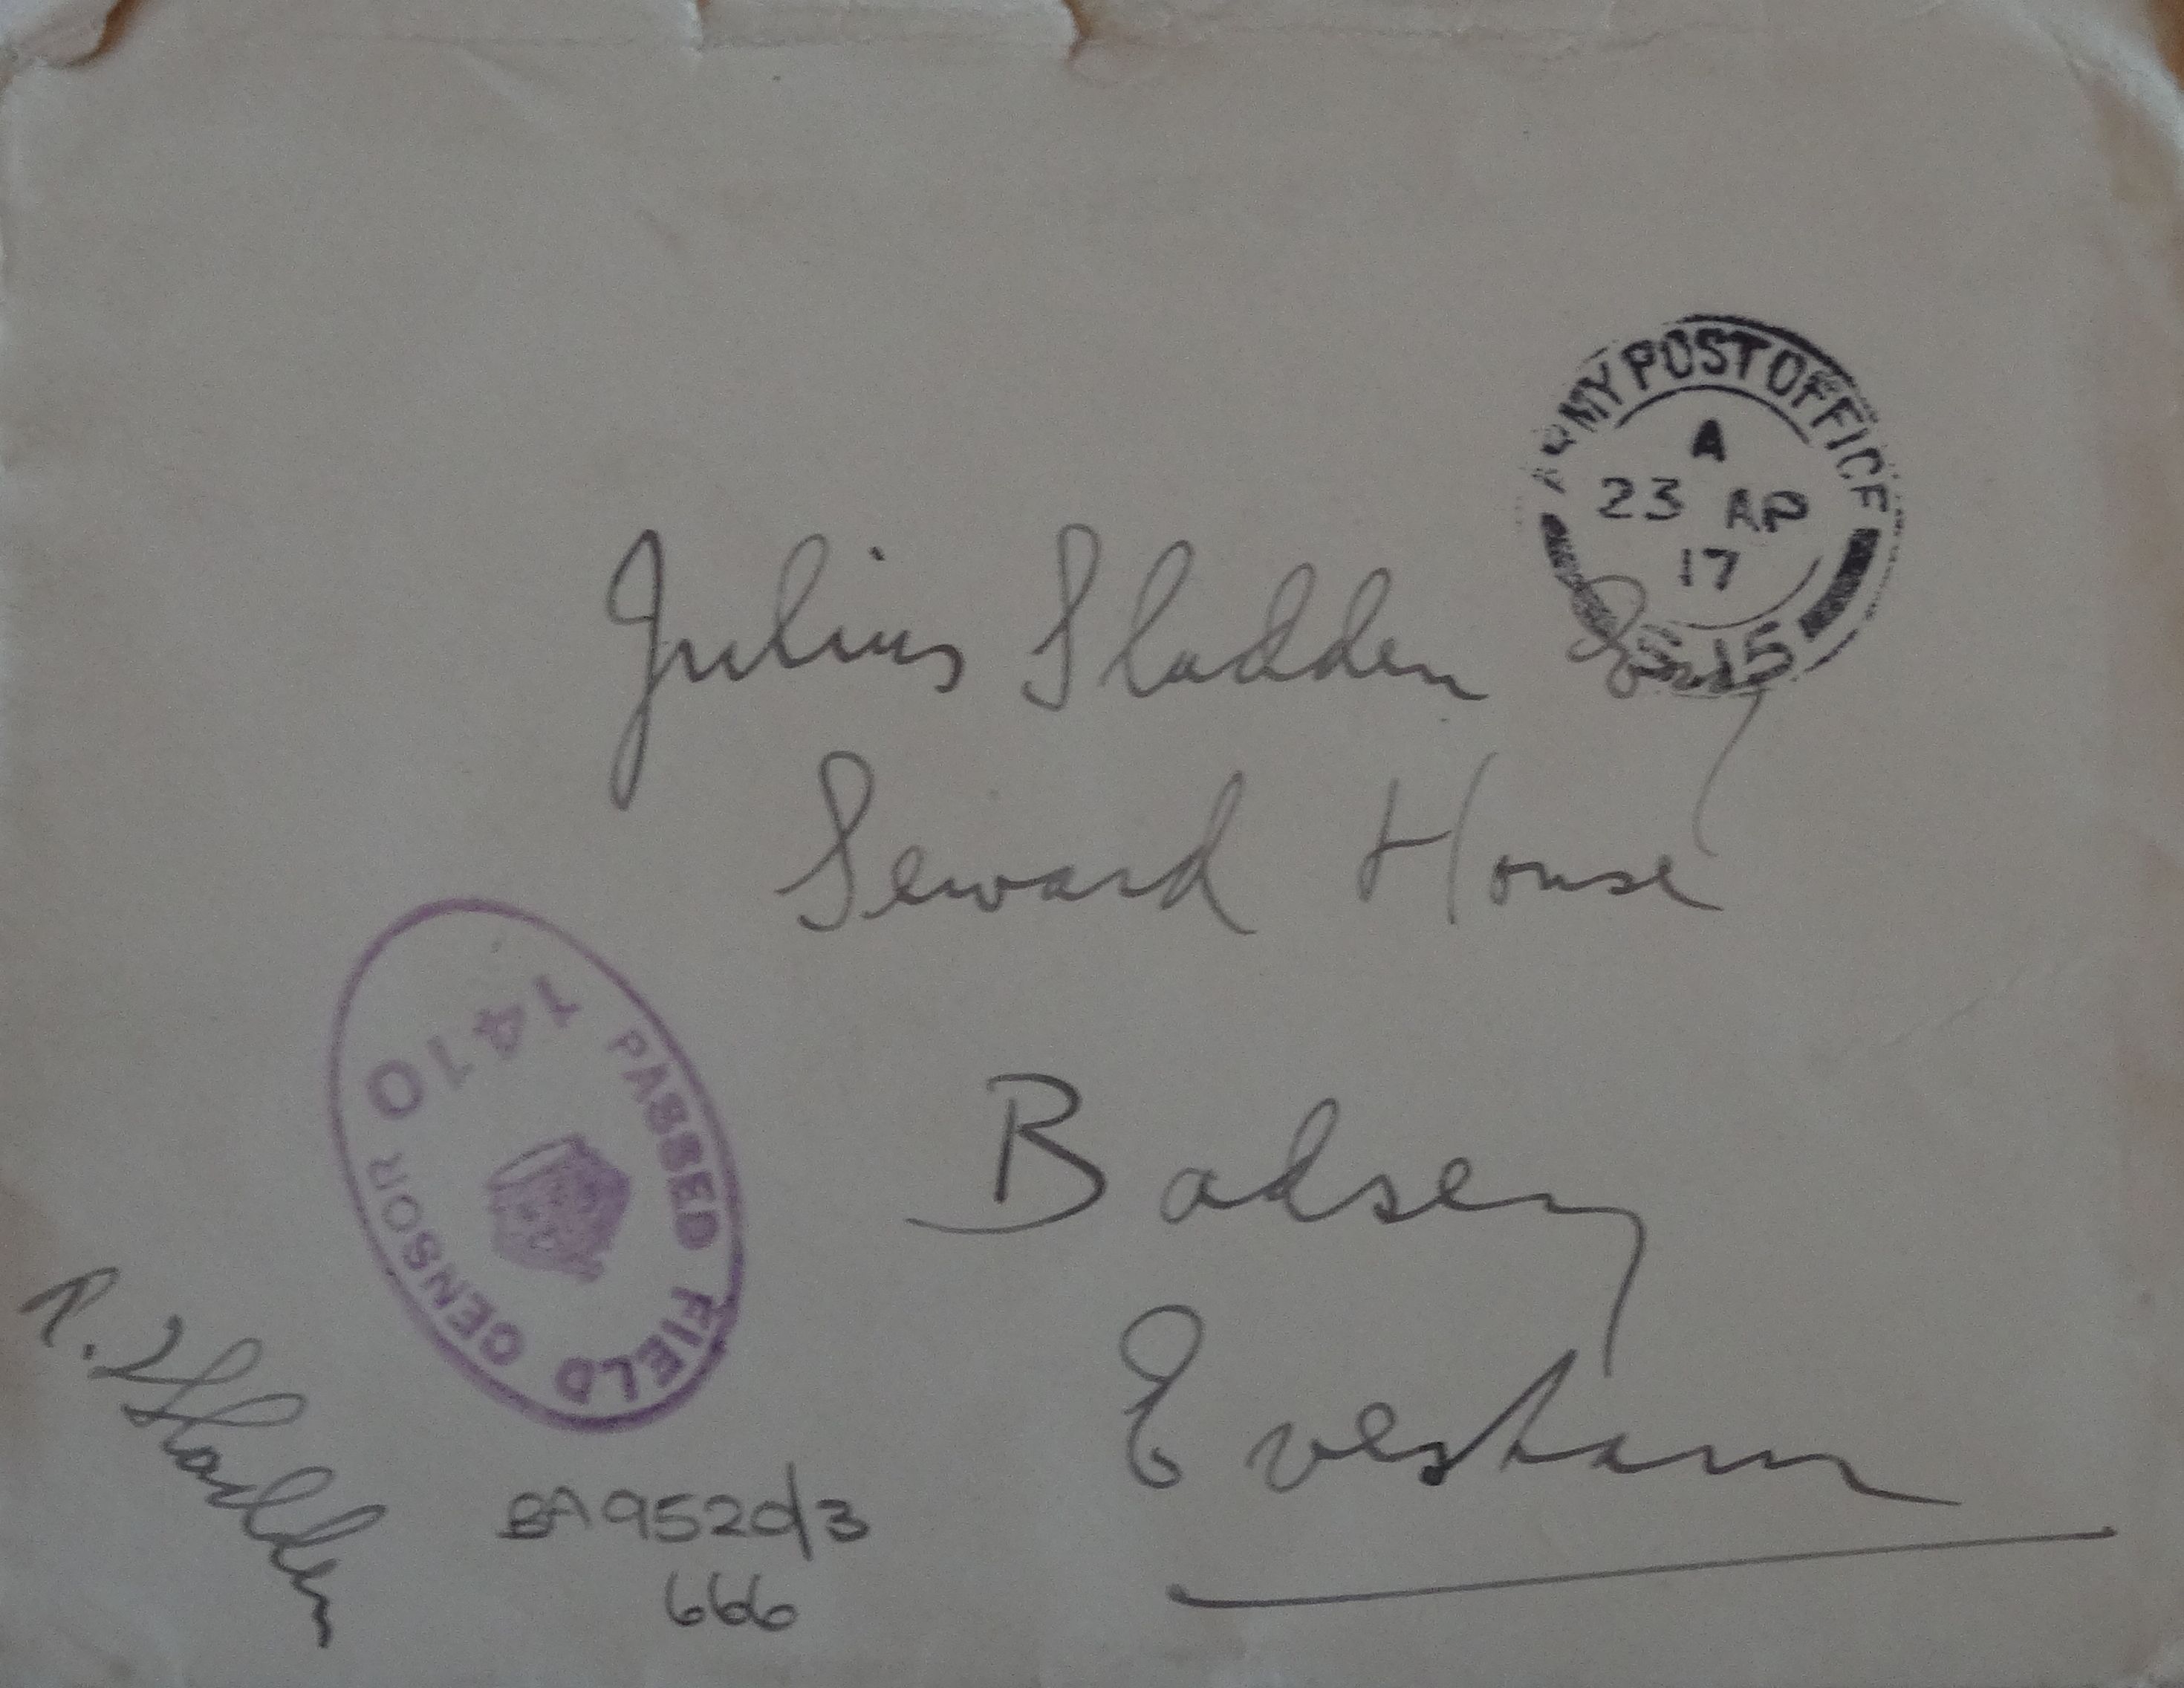 ARMY POST OFFICE
A
23 AP
17
S.15
Julius Sladden Esq
Seward House
Badsey
Evesham
PASSED FIELD CENSOR
1410
BA9520/3
666
Sladden